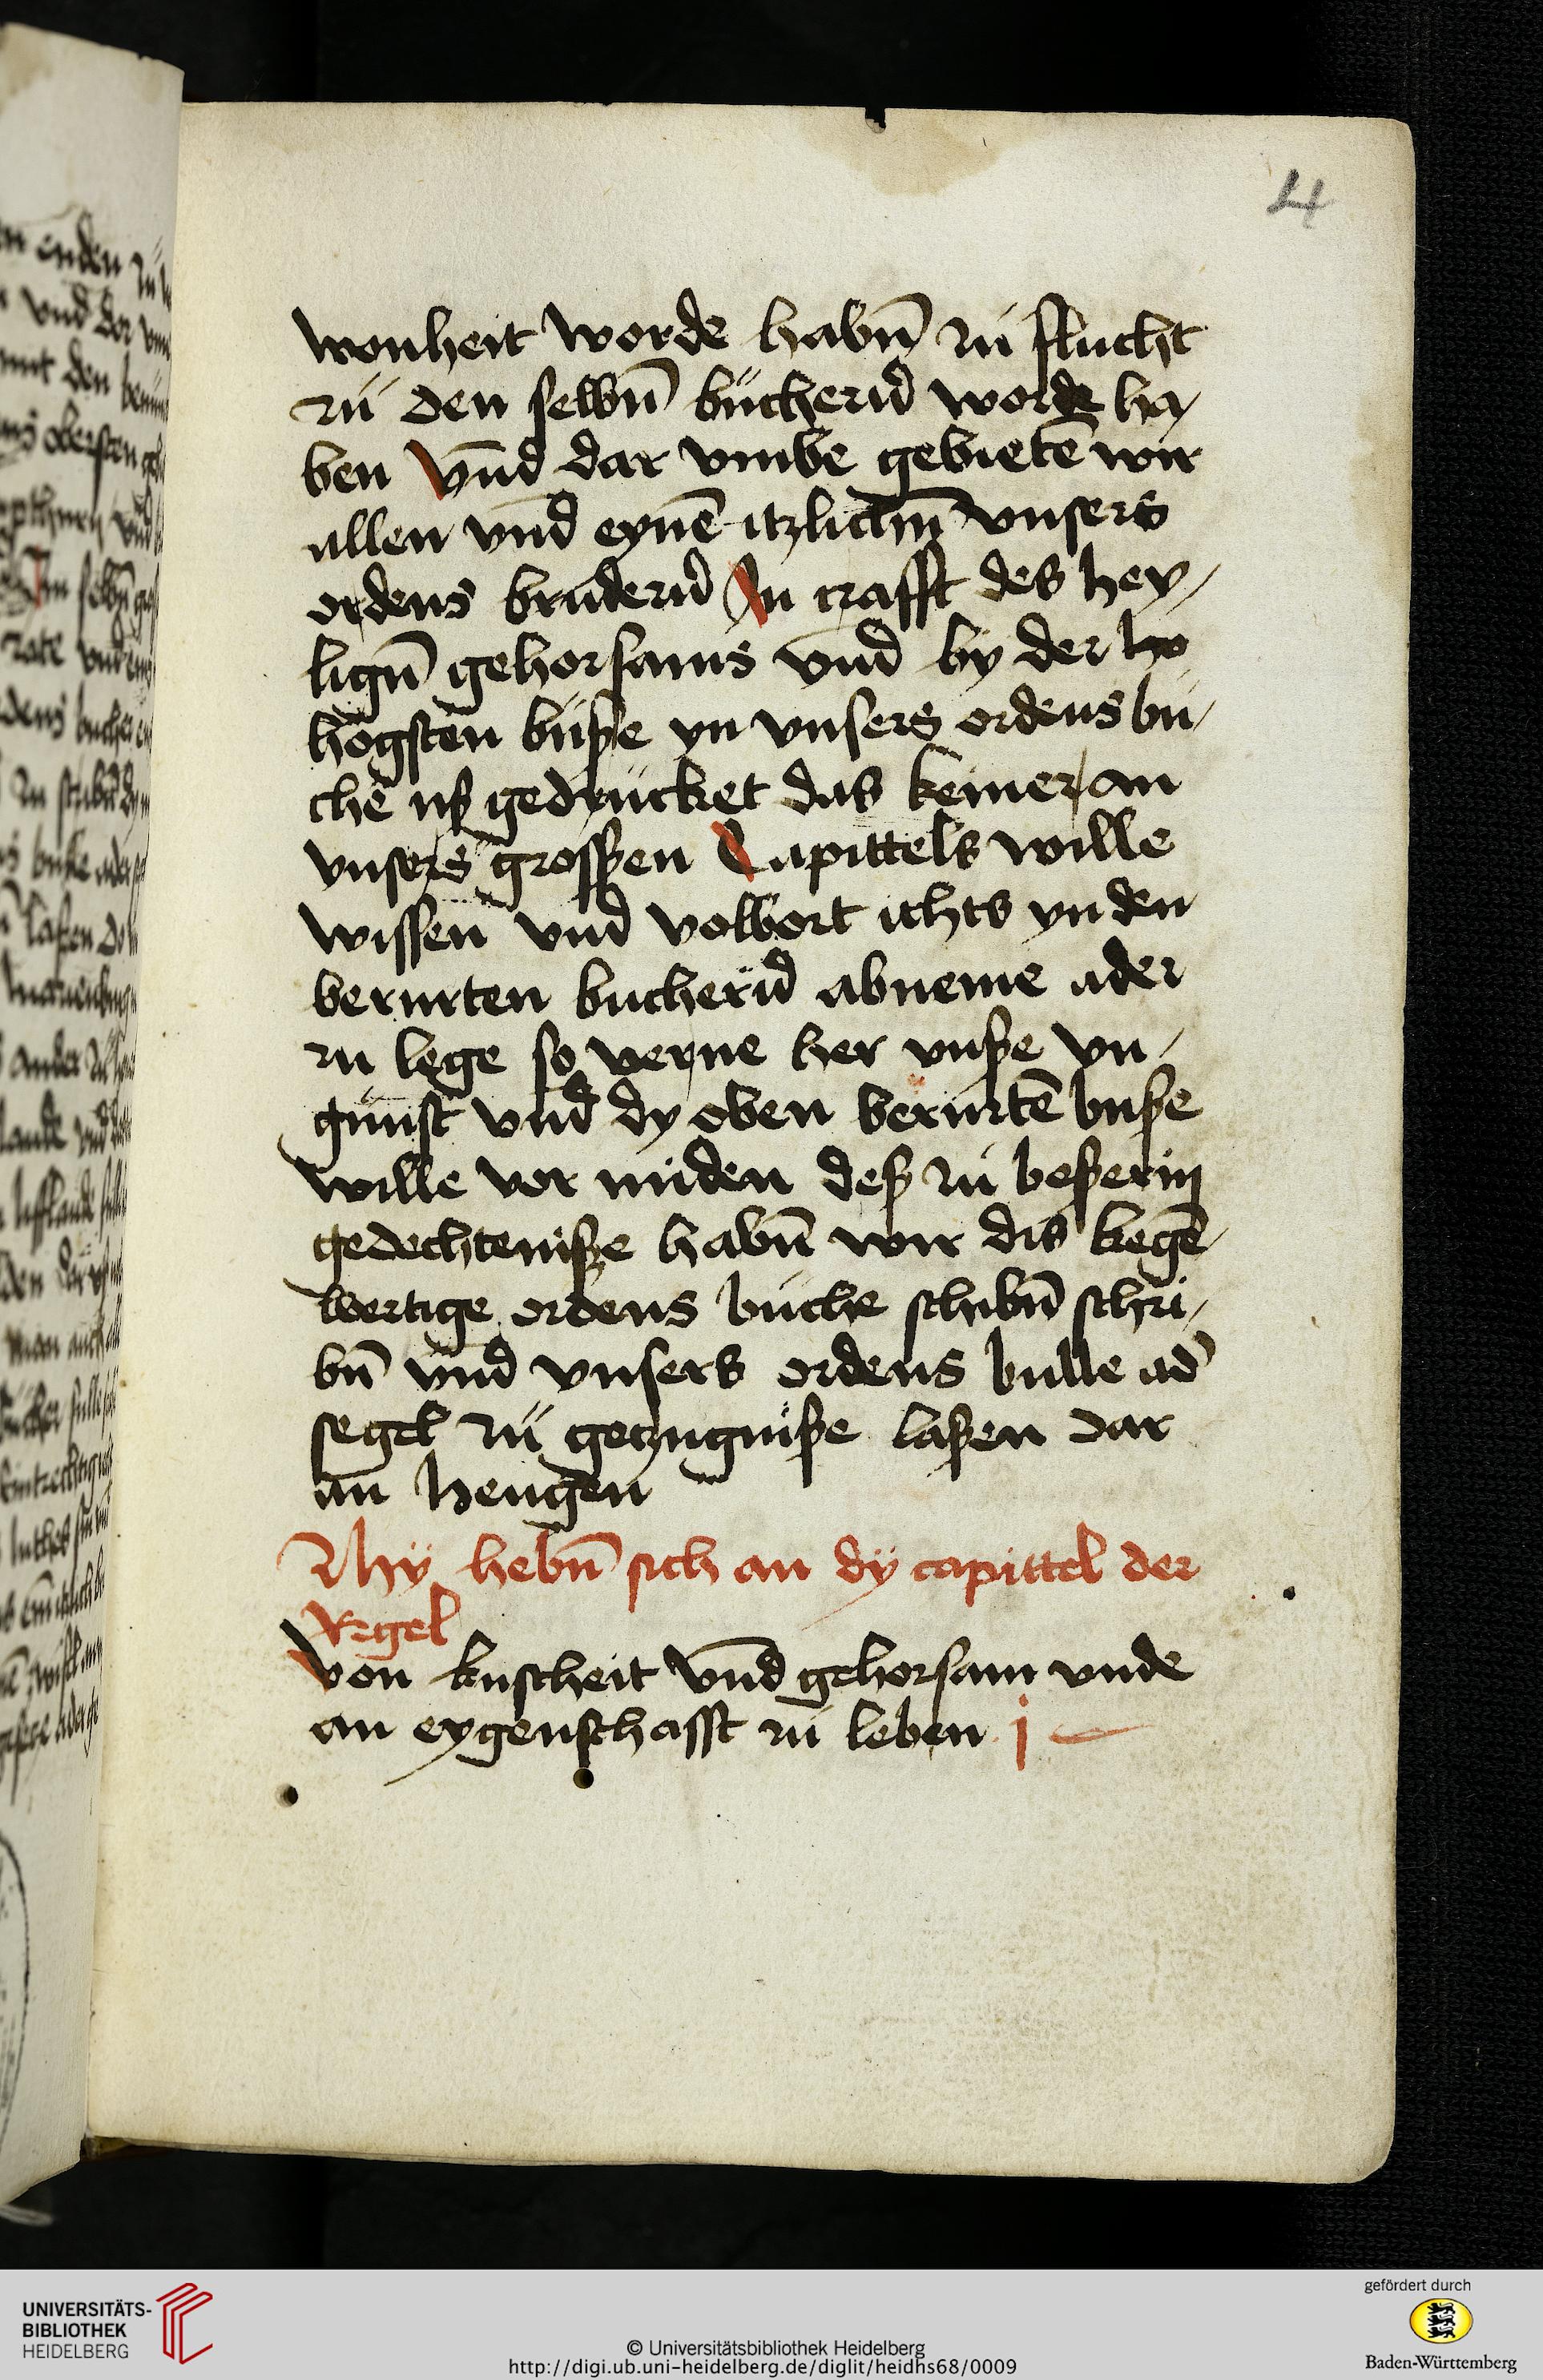 4
wonheit worde habn̄ zu flucht
zu den selbn̄ bucherñ worde ha/
ben vnd dar vmbe gebietē wir
allen vnd eynē itzlichm̄ vnsers
ordens bruderñ In crafft des hey/
lign̄ gehorsams vnd by der ho
hogsten buße yn vnsers ordens bu/
che uß gedrucket das keiner an
vnsers großen Capittels wille
wissen vnd volbort ichts yn den
berurten bucherñ abneme ader
zu lege so verne her vnße vn/
gunst vnd dy oben berurtē buße
wille vor miden deß zu beßerm
gedechteniße habn̄ wir dis kegē/
wertige ordens buche schribn̄ schri/
bn̄ vnd vnsers ordens bulle ad̕
segel zu geczugniße laßen dar
an hengen
Hy hebn̄ sich an dy capittel der
Regel
Von kuscheit vnd gehorsam vnde
an eygenschafft zu leben j
UNIVERSITÄTS-
BIBLIOTHEK
HEIDELBERG
© Universitätsbibliothek Heidelberg
http://digi.ub.uni-heidelberg.de/diglit/heidhs68/0009
gefördert durch
Baden-Württemberg